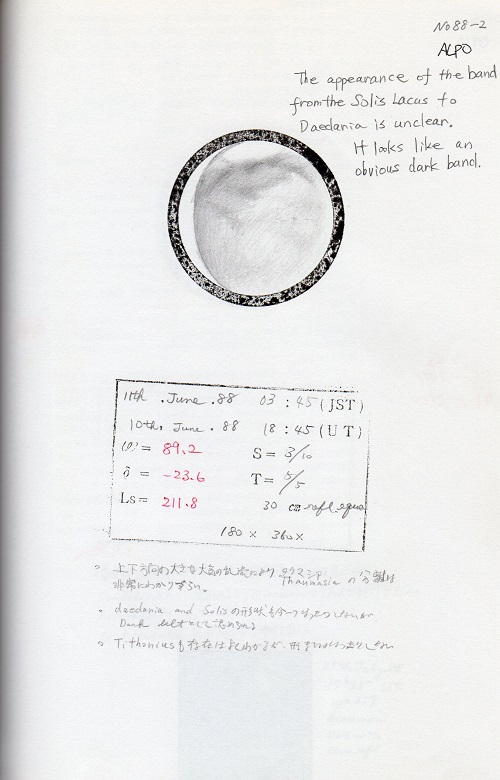 No 88-2
ALPO
The appearance of the band
from the Solis Lacus to
Daedaria is unclear.
It looks like an
obvious dark band.
11th . June . 88 03 : 45 (JST)
10th, June . 88 18 : 45 (UT)
ω = 89.2 S = 3/10
δ = -23.6 T = 5/5
Ls = 211.8 30 cm refl equa
180 × 360 ×
上下方向の大きな大気の乱流により タウマシア Thaumasia の分離は
非常にわかりずらい。
daedaria and Solis の形状も今一つはっきりしないが
Dark belt として認められる
Tithonius も存在はよくわかるが、形まではっきりしない